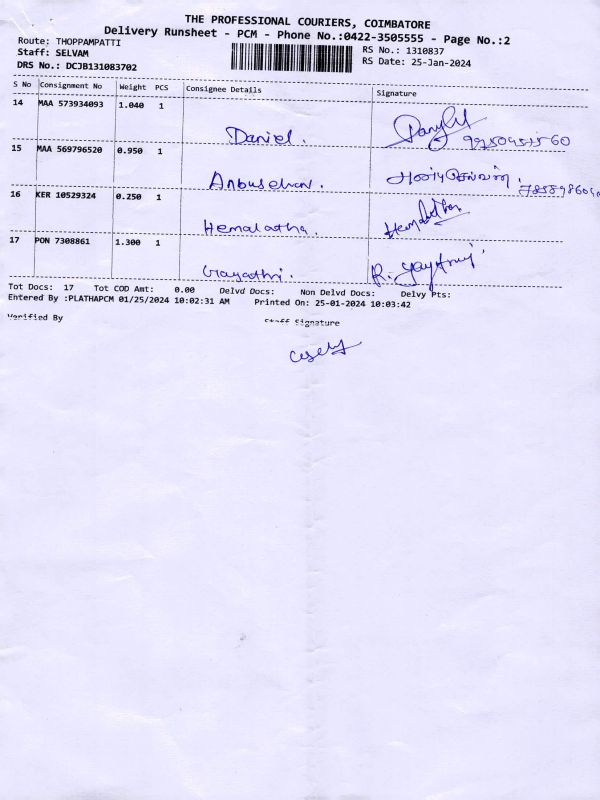 THE PROFESSIONAL COURIERS, COIMBATORE
Delivery Runsheet - PCM - Phone No.:0422-3505555 - Page No.:2
Route: THOPPAMPATTI
RS No.: 1310837
Staff: SELVAM
RS Date: 25-Jan-2024
DRS No.: DCJB131083702
S No Consignment No Weight PCS Consignee Details Signature
14 MAA 573934093 1.040 1
Daniel.
15 MAA 569796520 0.950 1
அன்புசெல்வன்.
16 KER 10529324 0.250 1
Hemalatha.
17 PON 7308861 1.300 1
Gayathri. R.
Tot Docs: 17 Tot COD Amt: 0.00 Delvd Docs: Non Delvd Docs: Delvy Pts:
Entered By :PLATHAPCM 01/25/2024 10:02:31 AM Printed On: 25-01-2024 10:03:42
Verified By Staff Signature